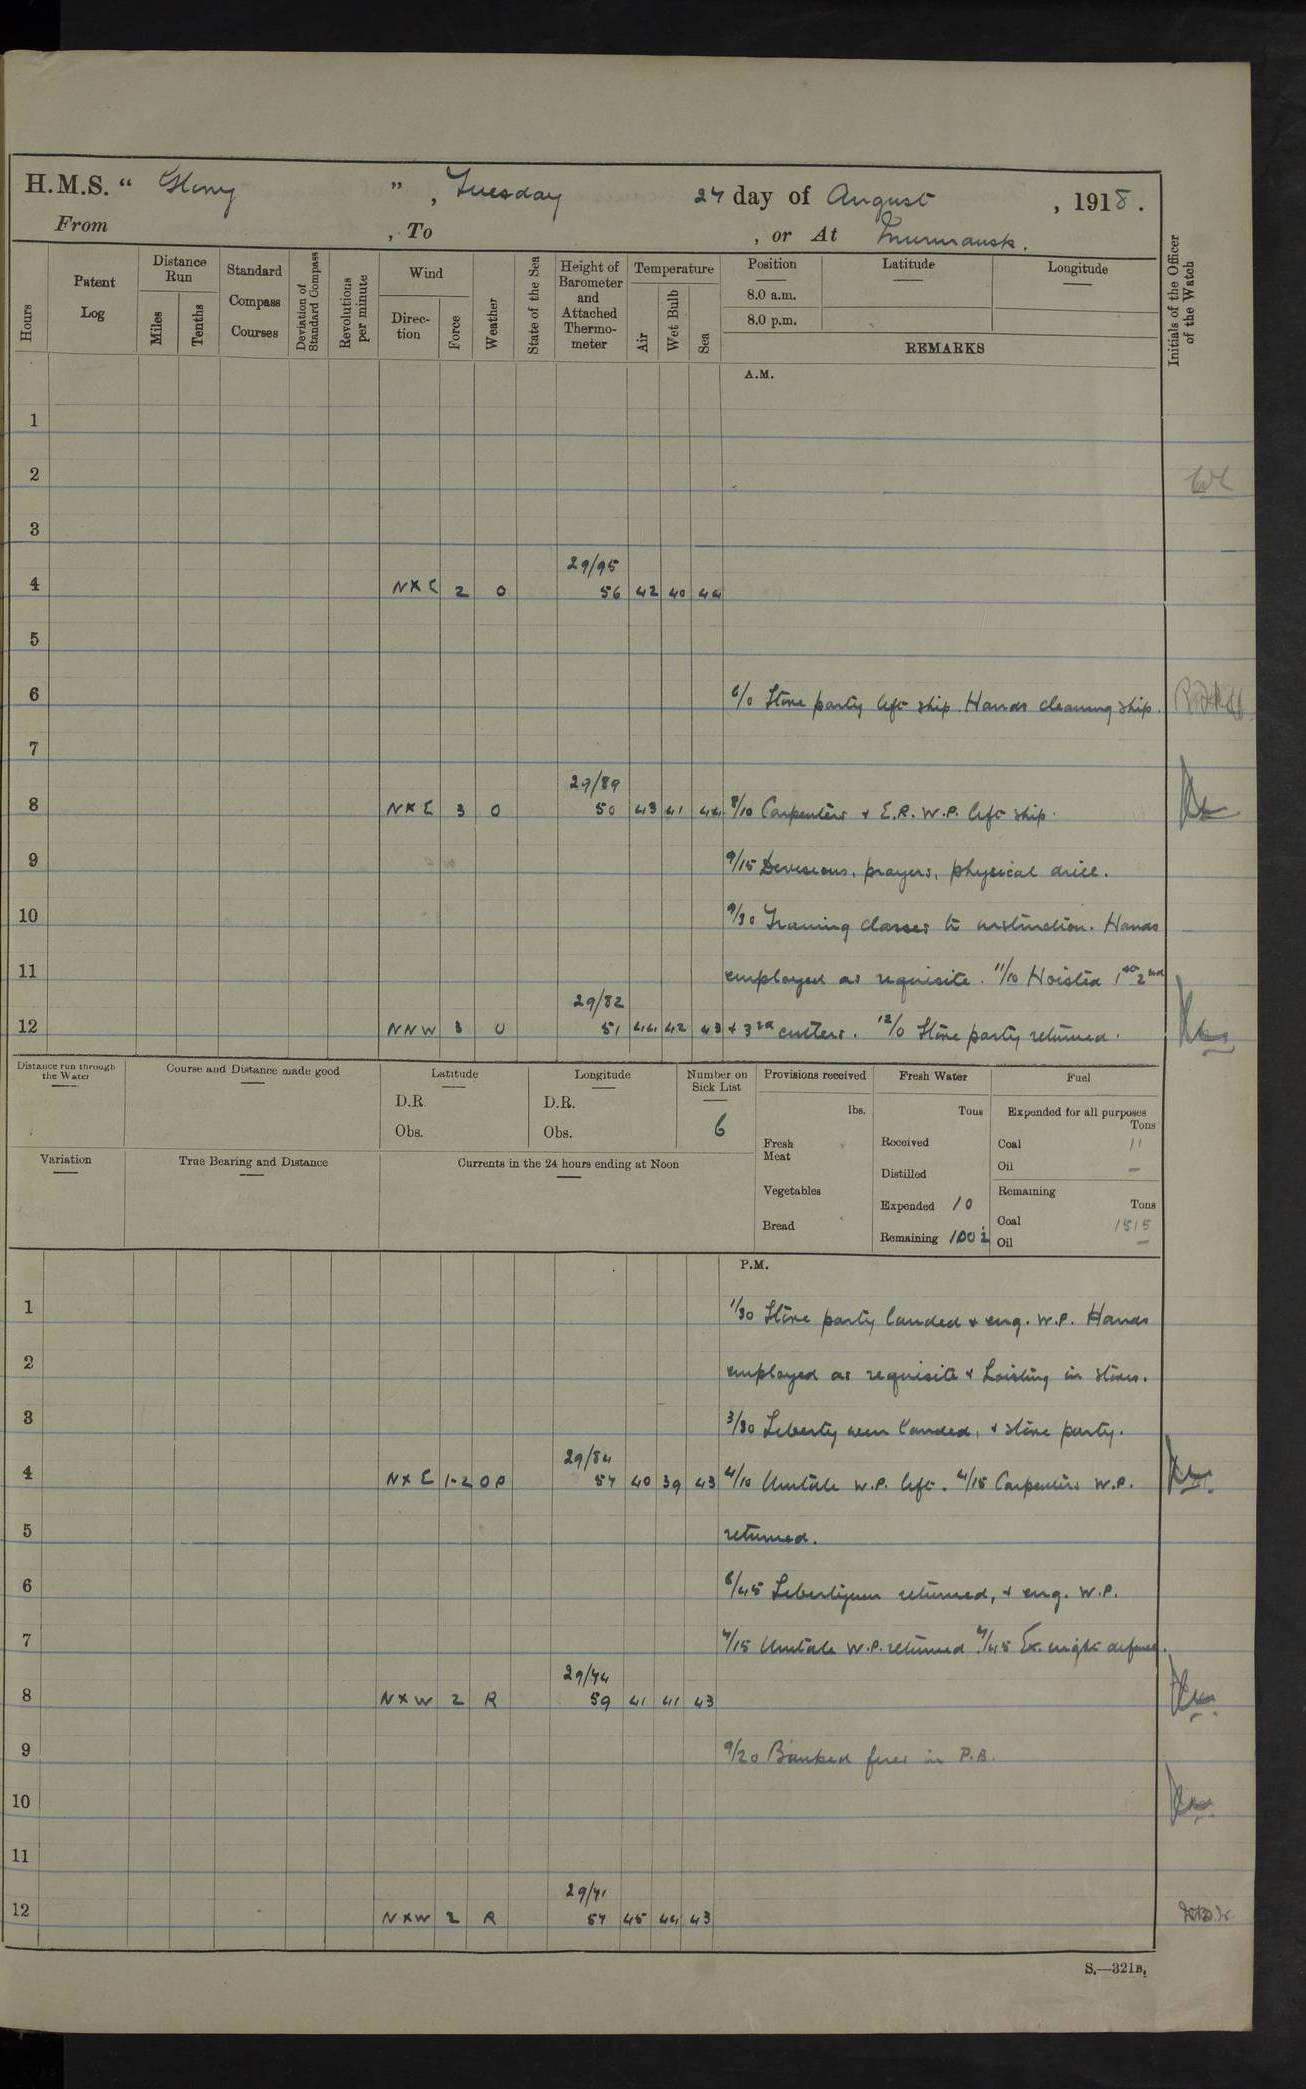 H.M.S. “ Glory ”, Tuesday 27 day of August, 1918.
From , To , or At Murmansk.
Hours
Patent Log
Distance Run
Miles
Tenths
Standard Compass Courses
Deviation of Standard Compass
Revolutions per minute
Wind
Direc-tion
Force
Weather
State of the Sea
Height of Barometer and Attached Thermo-meter
Temperature
Air
Wet Bulb
Sea
Position
8.0 a.m.
8.0 p.m.
Latitude
Longitude
REMARKS
Initials of the Officer of the Watch
A.M.
1
2
3
29/95
4 NXE 2 O 56 42 40 44
5
6 6/0 Store party left ship. Hands cleaning ship.
7
29/89
8 NXE 3 O 50 43 41 44 8/10 Carpenters & E.R. W.P. left ship.
9 9/15 Divisions, prayers, physical drill.
10 9/30 Training classes to instruction. Hands
11 employed as requisite. 11/10 Hoisted 1st 2nd
29/82
12 NNW 3 O 51 44 42 43 & 3rd cutters. 12/0 Store party returned.
Distance run through the Water
Course and Distance made good
Latitude
D.R.
Obs.
Longitude
D.R.
Obs.
Number on Sick List
6
Provisions received
lbs.
Fresh Meat
Vegetables
Bread
Fresh Water
Tons
Received
Distilled
Expended 10
Remaining 100
Fuel
Expended for all purposes
Tons
Coal 11
Oil —
Remaining
Tons
Coal 1515
Oil —
Variation
True Bearing and Distance
Currents in the 24 hours ending at Noon
P.M.
1 1/30 Store party landed & eng. W.P. Hands
2 employed as requisite & hoisting in stores.
3 3/30 Liberty men landed, & store party.
29/84
4 NXE 1-2 OP 57 40 39 43 4/10 Umtale W.P. left. 4/15 Carpenters W.P.
5 returned.
6 6/45 Libertymen returned, & eng. W.P.
7 7/15 Umtale W.P. returned 7/45 Ex. night defence.
29/74
8 NXW 2 R 59 41 41 43
9 9/20 Banked fires in P.B.
10
11
29/71
12 NXW 2 R 57 45 44 43
S.—321B.